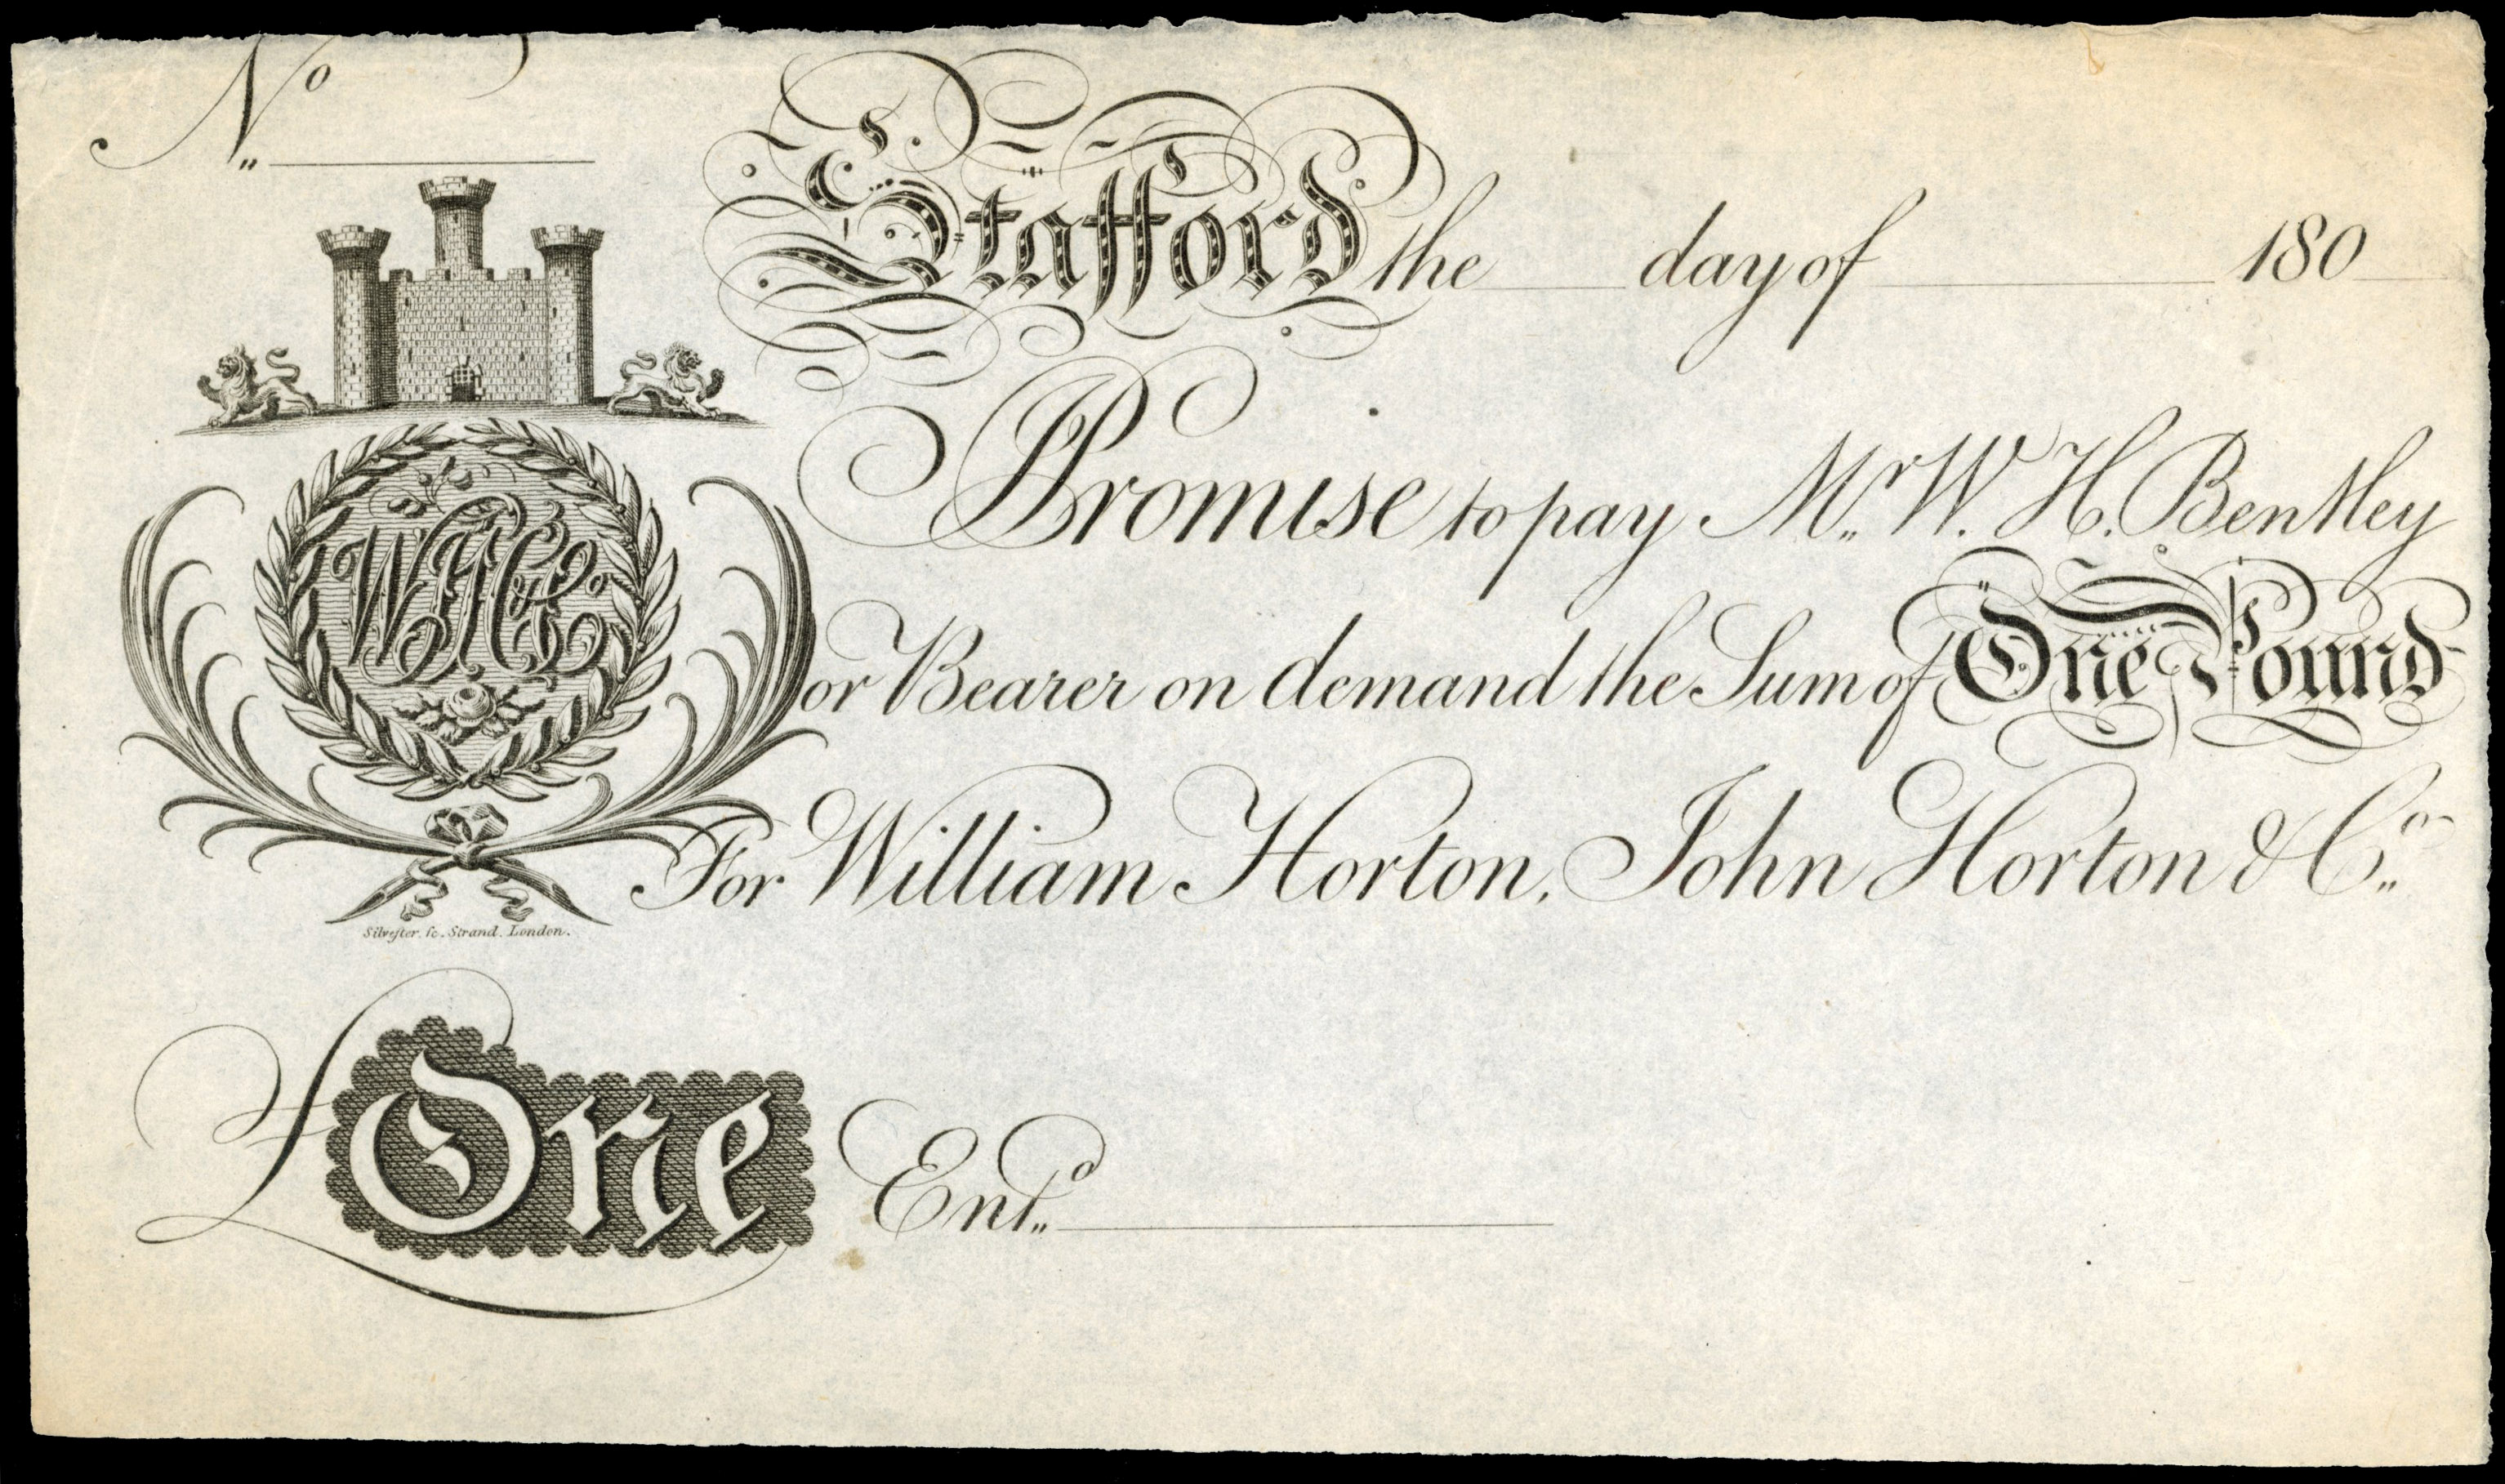 No
Stafford the day of 180
I Promise to pay Mr. W. H. Bentley
or Bearer on demand the Sum of One Pound
For William Horton, John Horton & Co.
WH&Co
Silvester. sc. Strand. London.
£One
Entd.